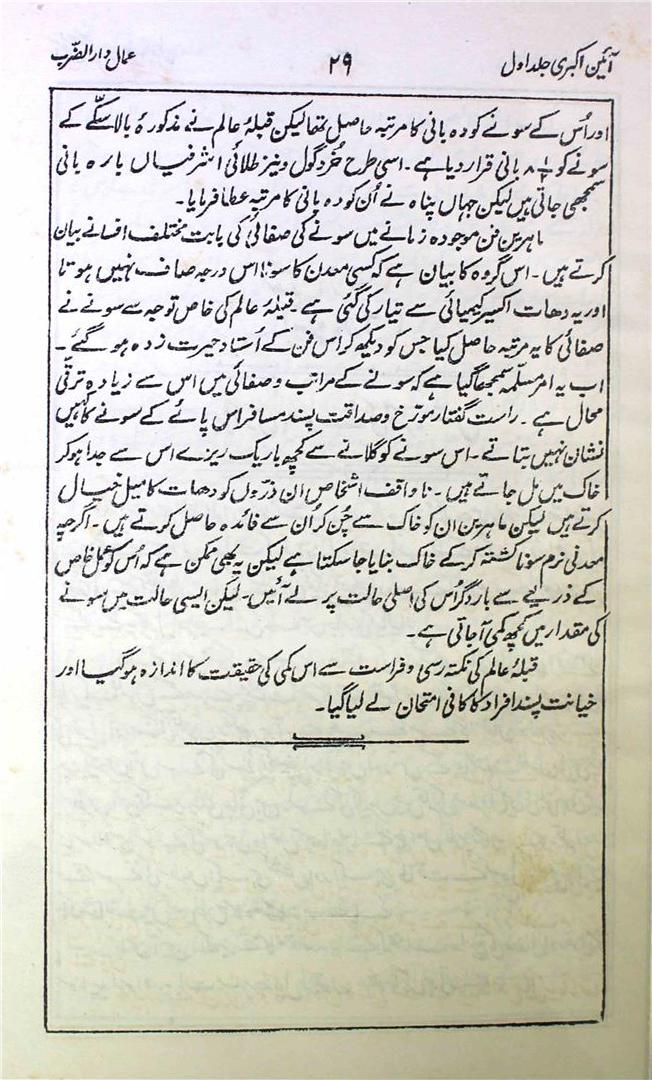 آئین اکبری جلد اول
۲۹
عمال دار الضرب
اور اُس کے سونے کو دہ بانی کا مرتبہ حاصل تھا لیکن قبلۂ عالم نے مذکورۂ بالا سکّے کے
سونے کو بانی قرار دیا ہے۔ اسی طرح خُرد گول دینز طلائی اشرفیاں بارہ بانی
سمجھی جاتی ہیں لیکن جہاں پناہ نے اُن کو دہ بانی کا مرتبہ عطا فرمایا۔
ماہرین فن موجودہ زمانے میں سونے کی صفائی کی بابت مختلف افسانے بیان
کرتے ہیں۔ اس گروہ کا بیان ہے کہ کسی معدن کا سونا اس درجہ صاف نہیں ہوتا
اور یہ دھات اکسیر کیمیائی سے تیار کی گئی ہے۔ قبلۂ عالم کی خاص توجہ سے سونے نے
صفائی کا یہ مرتبہ حاصل کیا جس کو دیکھ کر اس فن کے اُستاد حیرت زدہ ہو گئے۔
اب یہ امر مسلّمہ سمجھا گیا ہے کہ سونے کے مراتب و صفائی میں اس سے زیادہ ترقّی
محال ہے۔ راست گفتار مورخ و صداقت پسند مسافر اس پائے کے سونے کا کہیں
نشان نہیں بتاتے۔ اس سونے کو گلانے سے کچھ باریک ریزے اس سے جدا ہو کر
خاک میں مل جاتے ہیں۔ ناواقف اشخاص ان ذرّوں کو دھات کا میل خیال
کرتے ہیں لیکن ماہرین ان کو خاک سے چُن کر اُن سے فائدہ حاصل کرتے ہیں۔ اگرچہ
معدنی نرم سونا کشتہ کر کے خاک بنایا جا سکتا ہے لیکن یہ بھی ممکن ہے کہ اُس کو عمل خاص
کے ذریعے سے بار دگر اُس کی اصلی حالت پر لے آئیں۔ لیکن ایسی حالت میں سونے
کی مقدار میں کچھ کمی آجاتی ہے۔
قبلۂ عالم کی نکتہ رسی و فراست سے اس کمی کی حقیقت کا اندازہ ہو گیا اور
خیانت پسند افراد کا کافی امتحان لے لیا گیا۔